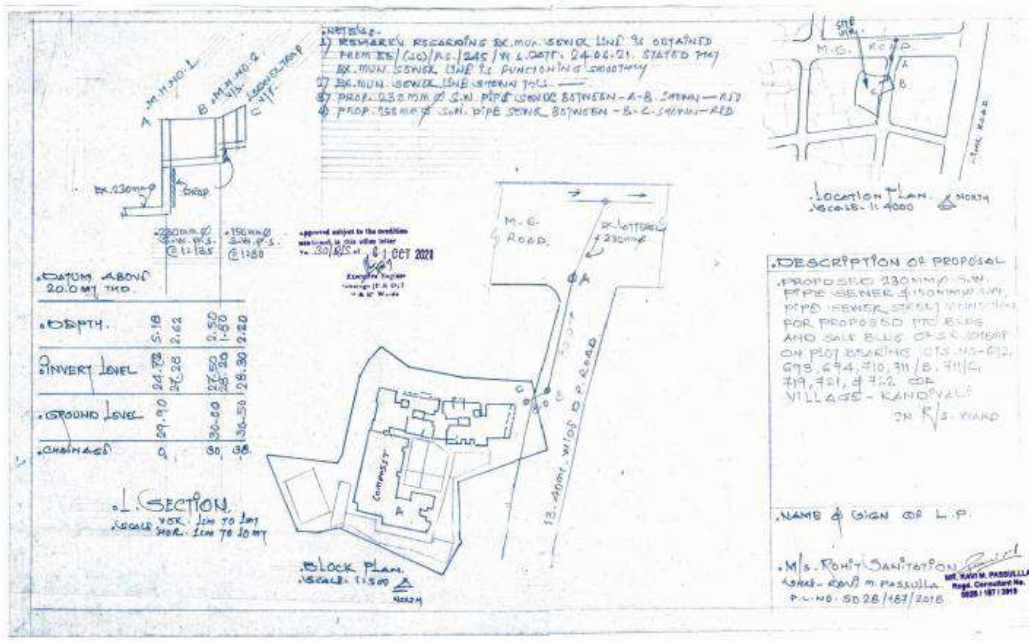 NOTES:-
1) REMARKS REGARDING EX. MUN. SEWER LINE IS OBTAINED
FROM EE/(SO)/P.S./245/W.S. DATE: 24.06.21. STATED THAT
EX. MUN. SEWER LINE IS FUNCTIONING SMOOTHLY
2) EX. MUN. SEWER LINE SHOWN THUS
3) PROP. 230MM Ø S.W. PIPE SEWER BETWEEN - A-B. SHOWN - RED
4) PROP. 150MM Ø S.W. PIPE SEWER BETWEEN - B-C. SHOWN - RED
M.H. NO-1
M.H. NO-2
SEWER TRAP
A
B
C
EX. 230MMØ
DROP
230MMØ
S.W.P.S.
@1:185
150MMØ
S.W.P.S.
@1:80
DATUM ABOVE
20.0 MT THD.
DEPTH. 5.18 2.62 2.50 1.80 2.20
INVERT LEVEL 24.72 27.28 27.50 28.20 28.30
GROUND LEVEL 29.90 30.00 30.50
CHAINAGE 0 30 38
L. SECTION
SCALE VER. 1CM TO 1MT
HOR. 1CM TO 10MT
approved subject to the condition
mentioned in this office letter
01 OCT 2021
Executive Engineer
M.G.
ROAD.
230MMØ
A
B
C
13.40MT. WIDE D.P. ROAD
COMPOSIT
A
BLOCK PLAN.
SCALE. 1:500
NORTH
SITE
M.G. ROAD.
A
B
C
LOCATION PLAN.
SCALE- 1:4000
NORTH
DESCRIPTION OF PROPOSAL
PROPOSED 230MMØ S.W.
PIPE SEWER & 150MMØ S.W.
PIPE SEWER STREET CONNECTION
FOR PROPOSED PTC BLDG
AND SALE BLDG OF S.R. SCHEME
ON PLOT BEARING CTS. NO-692,
693, 694, 710, 711/B, 711/C,
719, 721, & 722 OF
VILLAGE - KANDIVALI
IN R/S. WARD
NAME & SIGN OF L.P.
M/S. ROHIT SANITATION
SHRI- RAVI M. PASSULLA
P.L. NO. SD 28/187/2018
MR. RAVI M. PASSULLA
Regd. Consultant No.